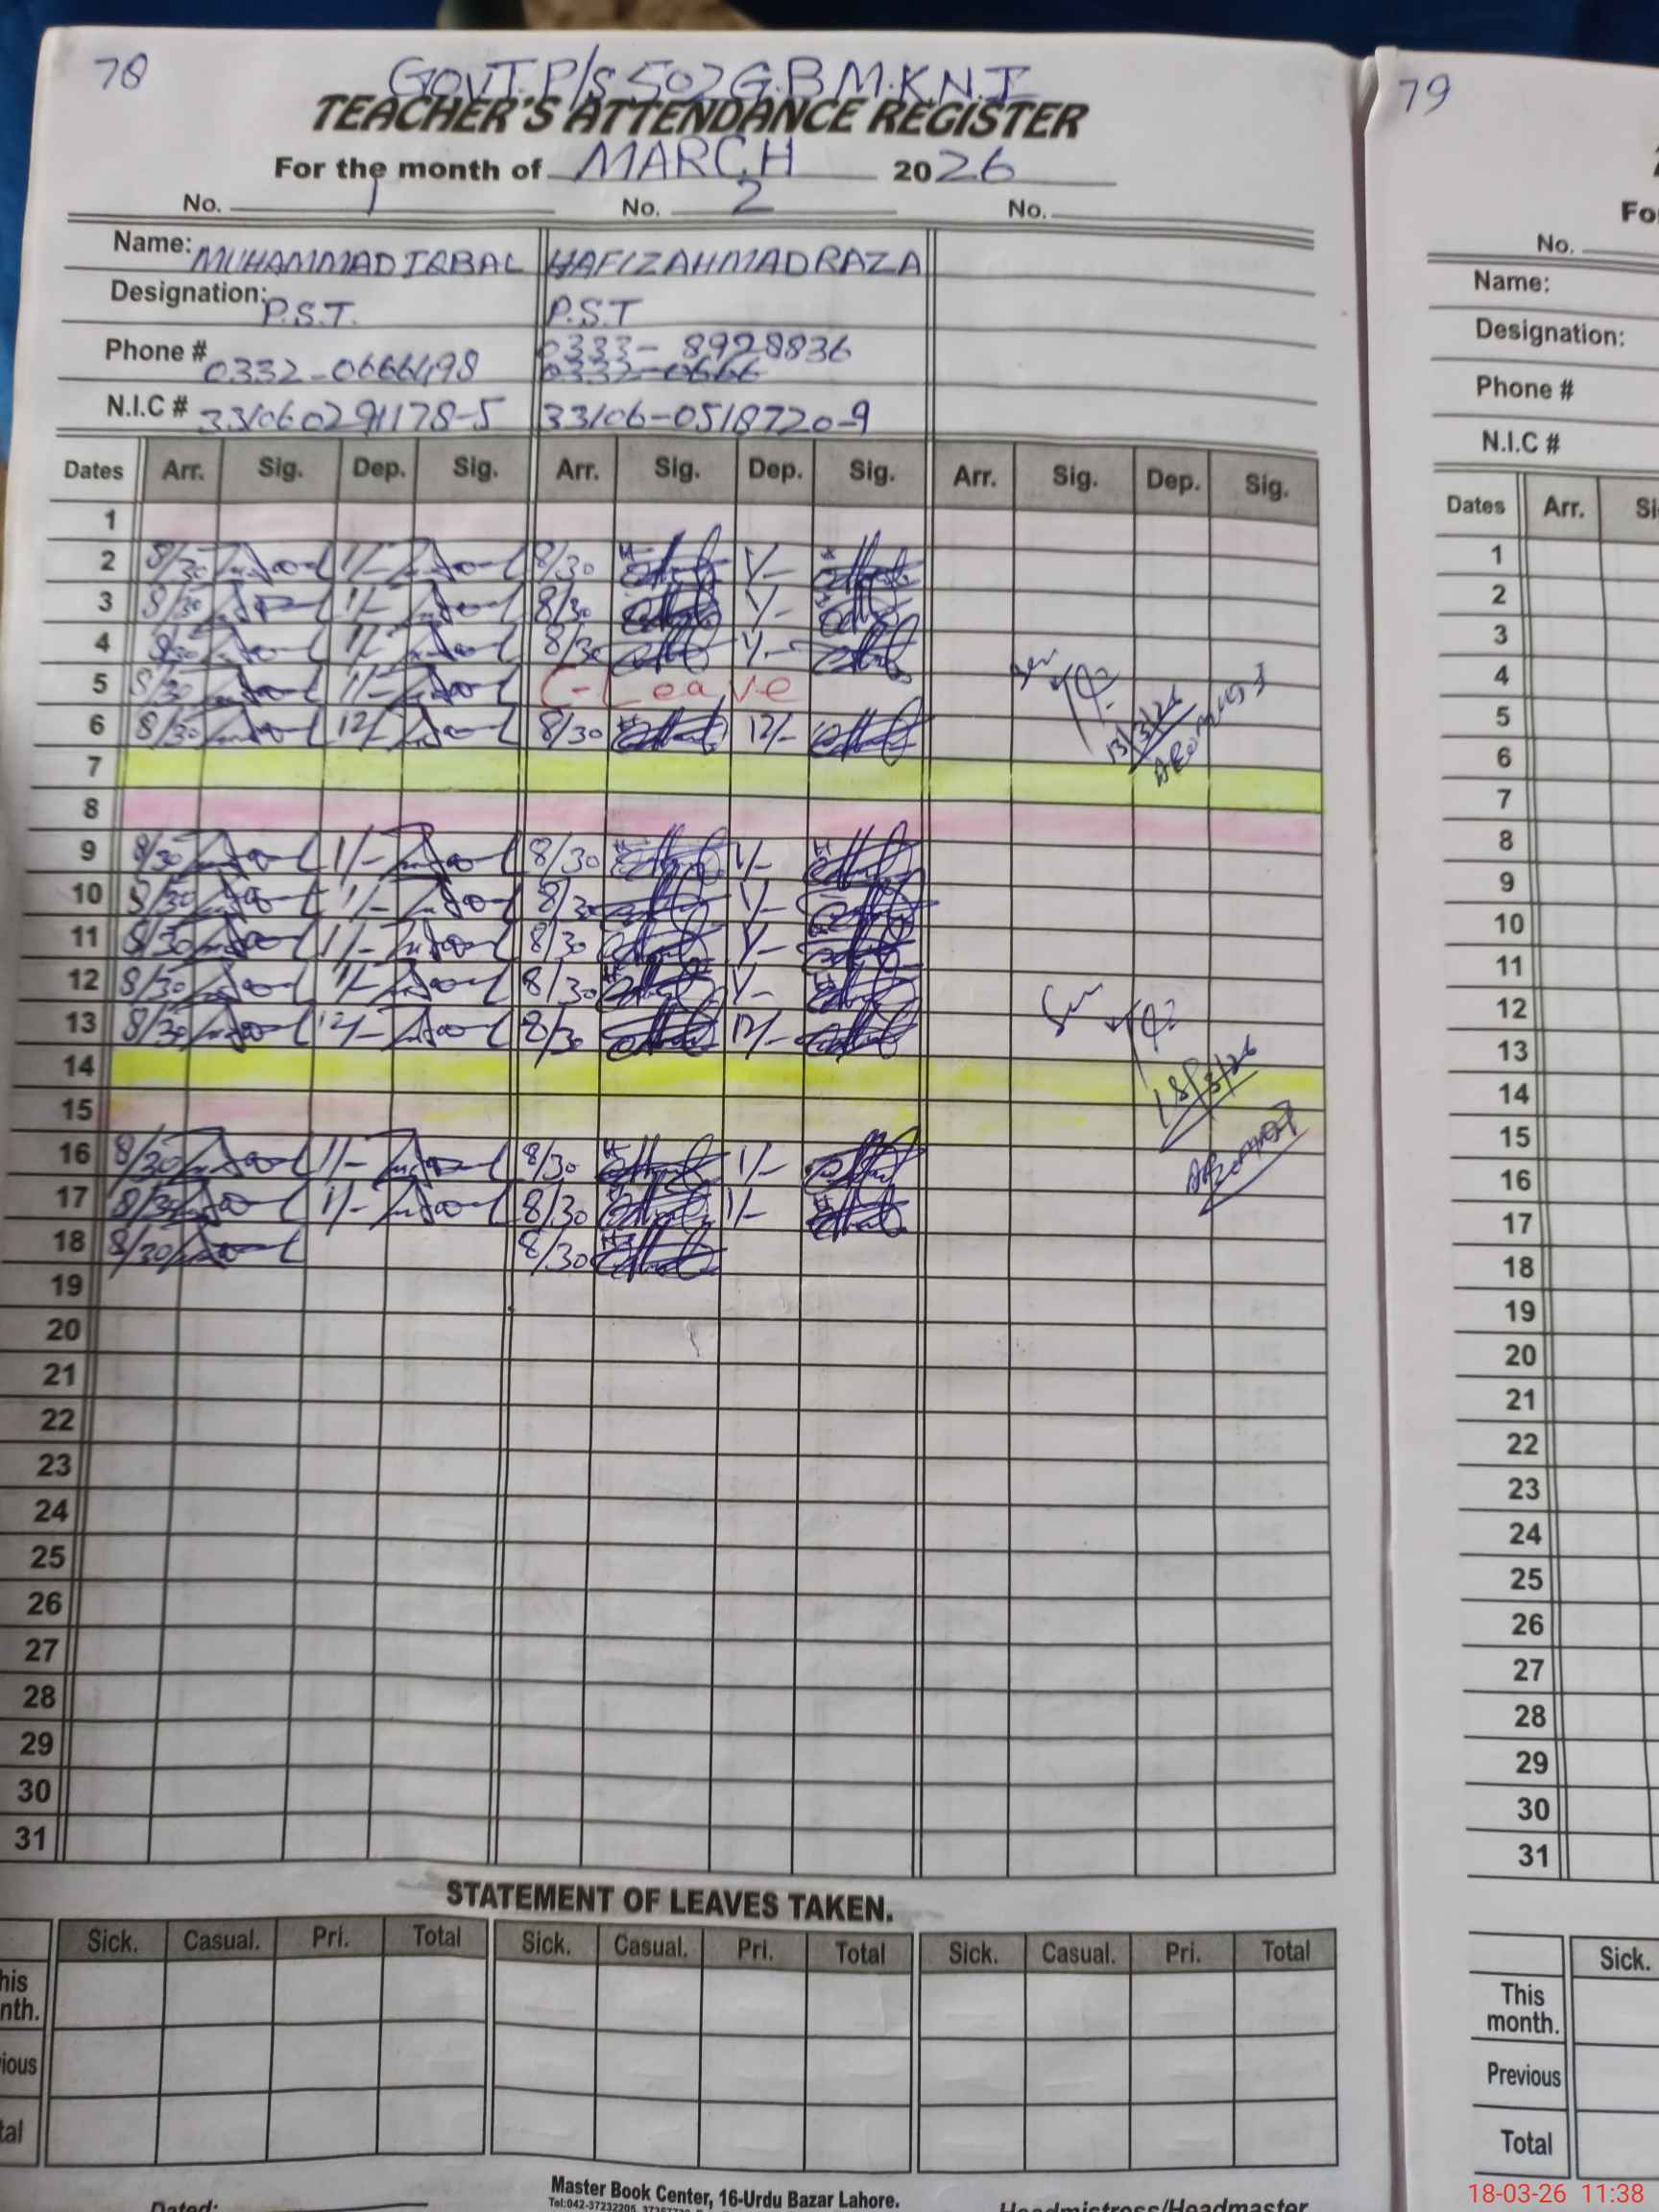 78
GOVT. P/S 502 G.B M.K.N.I
TEACHER'S ATTENDANCE REGISTER
For the month of MARCH 2026
No. 1 No. 2 No.
Name: MUHAMMAD IQBAL HAFIZ AHMAD RAZA
Designation: P.S.T. P.S.T
Phone # 0332-0666498 0333-8928836
0332-0666
N.I.C # 331060291178-5 33106-0518720-9
Dates Arr. Sig. Dep. Sig. Arr. Sig. Dep. Sig. Arr. Sig. Dep. Sig.
1
2 8/30 1/- 8/30 1/-
3 8/30 1/- 8/30 1/-
4 8/30 1/- 8/30 1/-
5 8/30 1/- C-Leave
6 8/30 12/- 8/30 12/-
13/3/26
7
8
9 8/30 1/- 8/30 1/-
10 8/30 1/- 8/30 1/-
11 8/30 1/- 8/30 1/-
12 8/30 1/- 8/30 1/-
13 8/30 12/- 8/30 12/-
14
18/3/26
15
16 8/30 1/- 8/30 1/-
17 8/30 1/- 8/30 1/-
18 8/30 8/30
19
20
21
22
23
24
25
26
27
28
29
30
31
STATEMENT OF LEAVES TAKEN.
Sick. Casual. Pri. Total Sick. Casual. Pri. Total Sick. Casual. Pri. Total
his
nth.
ious
tal
Master Book Center, 16-Urdu Bazar Lahore.
Tel:042-37232205,
Dated:
Headmistress/Headmaster
79
Fo
No.
Name:
Designation:
Phone #
N.I.C #
Dates Arr. Si
1
2
3
4
5
6
7
8
9
10
11
12
13
14
15
16
17
18
19
20
21
22
23
24
25
26
27
28
29
30
31
Sick.
This
month.
Previous
Total
18-03-26 11:38